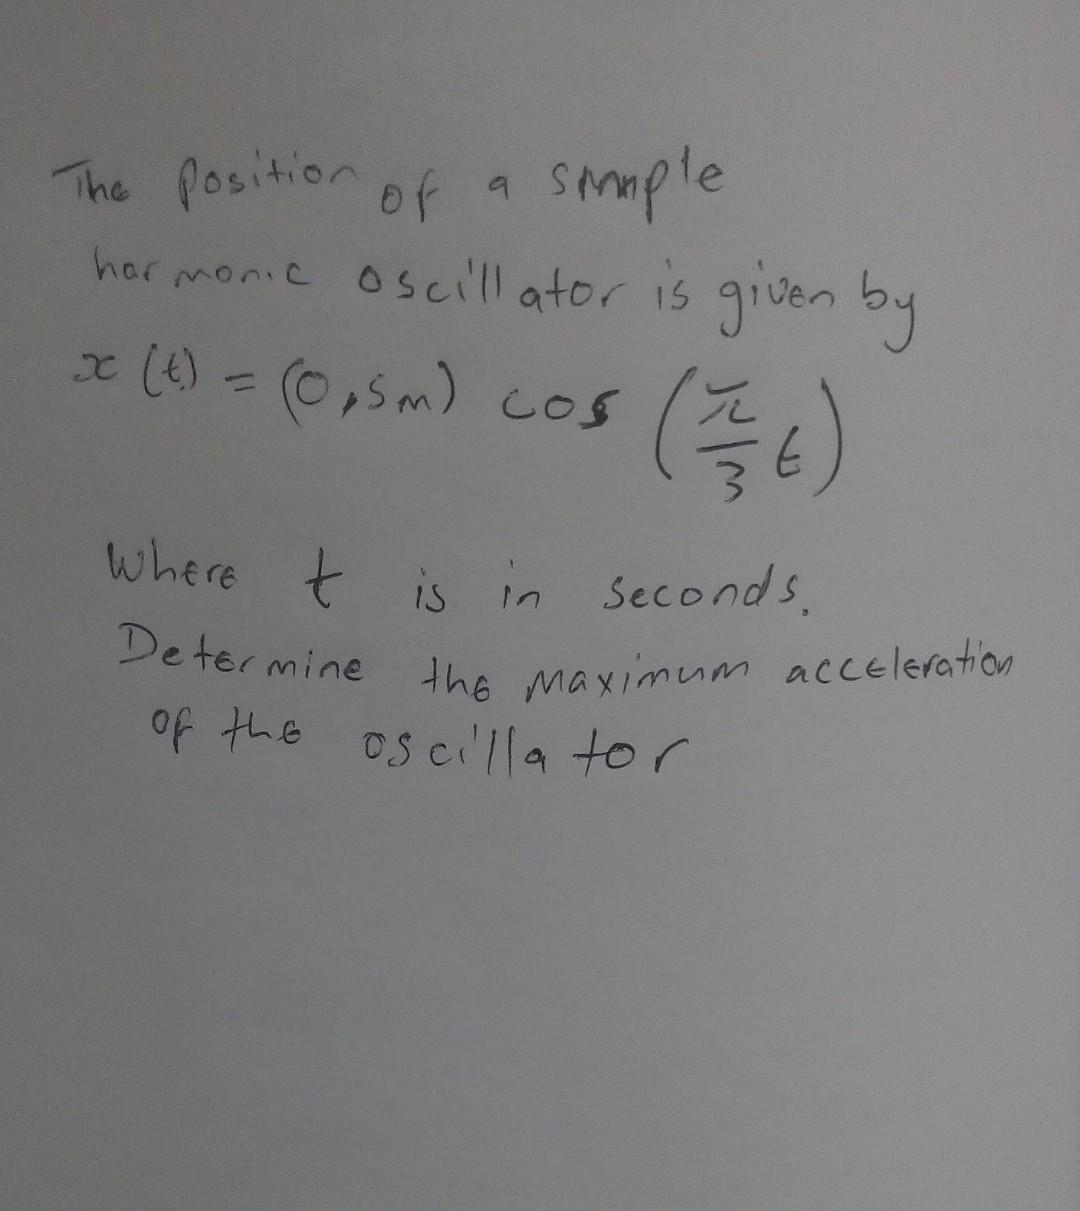 The position of a simple
harmonic oscillator is given by
x(t) = (0,5m) cos (π/3 t)
Where t is in seconds.
Determine the maximum acceleration
of the oscillator